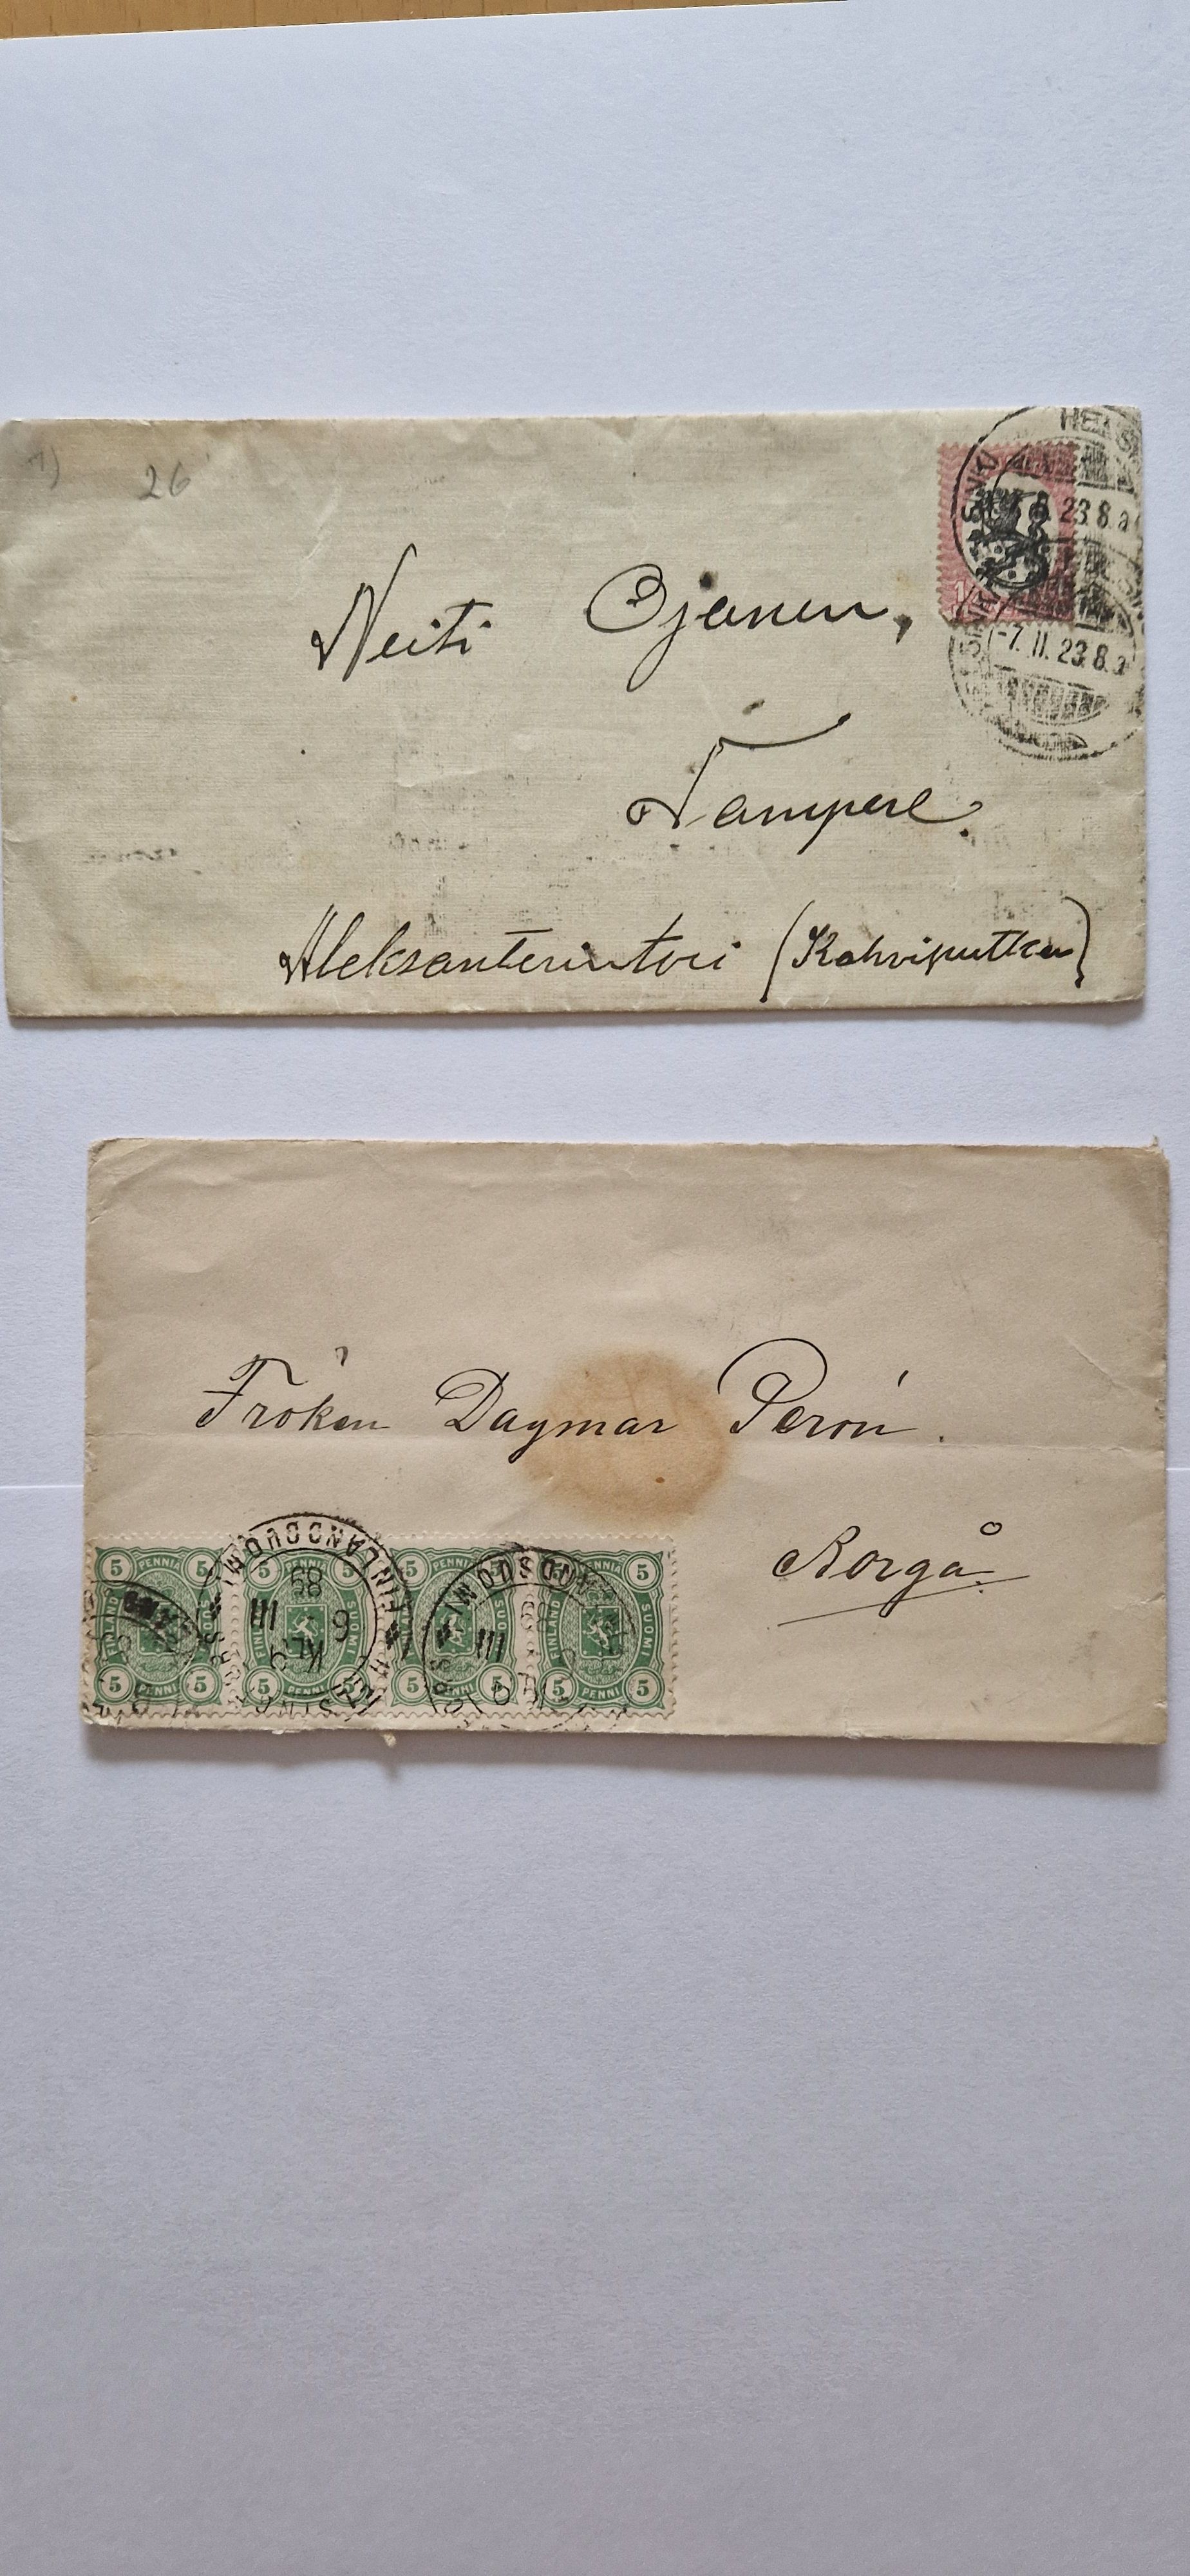 26
HELSINKI
23.8.a
HELSINKI
-7.II.23.8.a
Neiti Ojanen,
Tampere.
Aleksanterintori (Kahviputka)
Fröken Dagmar Perón.
Borgå.
5 PENNIÄ 5 5 PENNIÄ 5 5 PENNIÄ 5 5 PENNIÄ 5
FINLAND SUOMI FINLAND SUOMI FINLAND SUOMI FINLAND SUOMI
5 PENNI 5 5 PENNI 5 5 PENNI 5 5 PENNI 5
HELSINGFORS
FINLAND SUOMI
KL.9
6 III
89